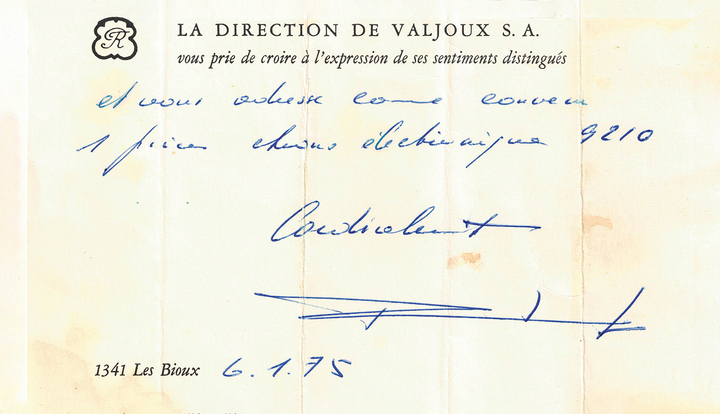 R
LA DIRECTION DE VALJOUX S. A.
vous prie de croire à l'expression de ses sentiments distingués
et vous adresse comme convenu
1 pièce chrono électronique 9210
Cordialement
1341 Les Bioux 6.1.75